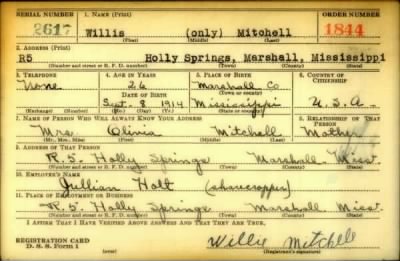 SERIAL NUMBER 1. NAME (Print) ORDER NUMBER
2617 Willis (only) Mitchell 1844
(First) (Middle) (Last)
2. ADDRESS (Print)
R5 Holly Springs, Marshall, Mississippi
(Number and street or R. F. D. number) (Town) (County) (State)
3. TELEPHONE 4. AGE IN YEARS 5. PLACE OF BIRTH 6. COUNTRY OF CITIZENSHIP
None 26 Marshall Co
DATE OF BIRTH (Town or county)
Sept. 8 1914 Mississippi U.S.A.
(Exchange) (Number) (Mo.) (Day) (Yr.) (State or country)
7. NAME OF PERSON WHO WILL ALWAYS KNOW YOUR ADDRESS 8. RELATIONSHIP OF THAT PERSON
Mrs. Olivia Mitchell Mother
(Mr., Mrs., Miss) (First) (Middle) (Last)
9. ADDRESS OF THAT PERSON
R. 5. Holly Springs Marshall Miss.
(Number and street or R. F. D. number) (Town) (County) (State)
10. EMPLOYER'S NAME
Jullian Holt (sharecropper)
11. PLACE OF EMPLOYMENT OR BUSINESS
R. 5. Holly Springs Marshall Miss.
(Number and street or R. F. D. number) (Town) (County) (State)
I AFFIRM THAT I HAVE VERIFIED ABOVE ANSWERS AND THAT THEY ARE TRUE.
REGISTRATION CARD
D. S. S. Form 1 Willie Mitchell
(Registrant's signature)